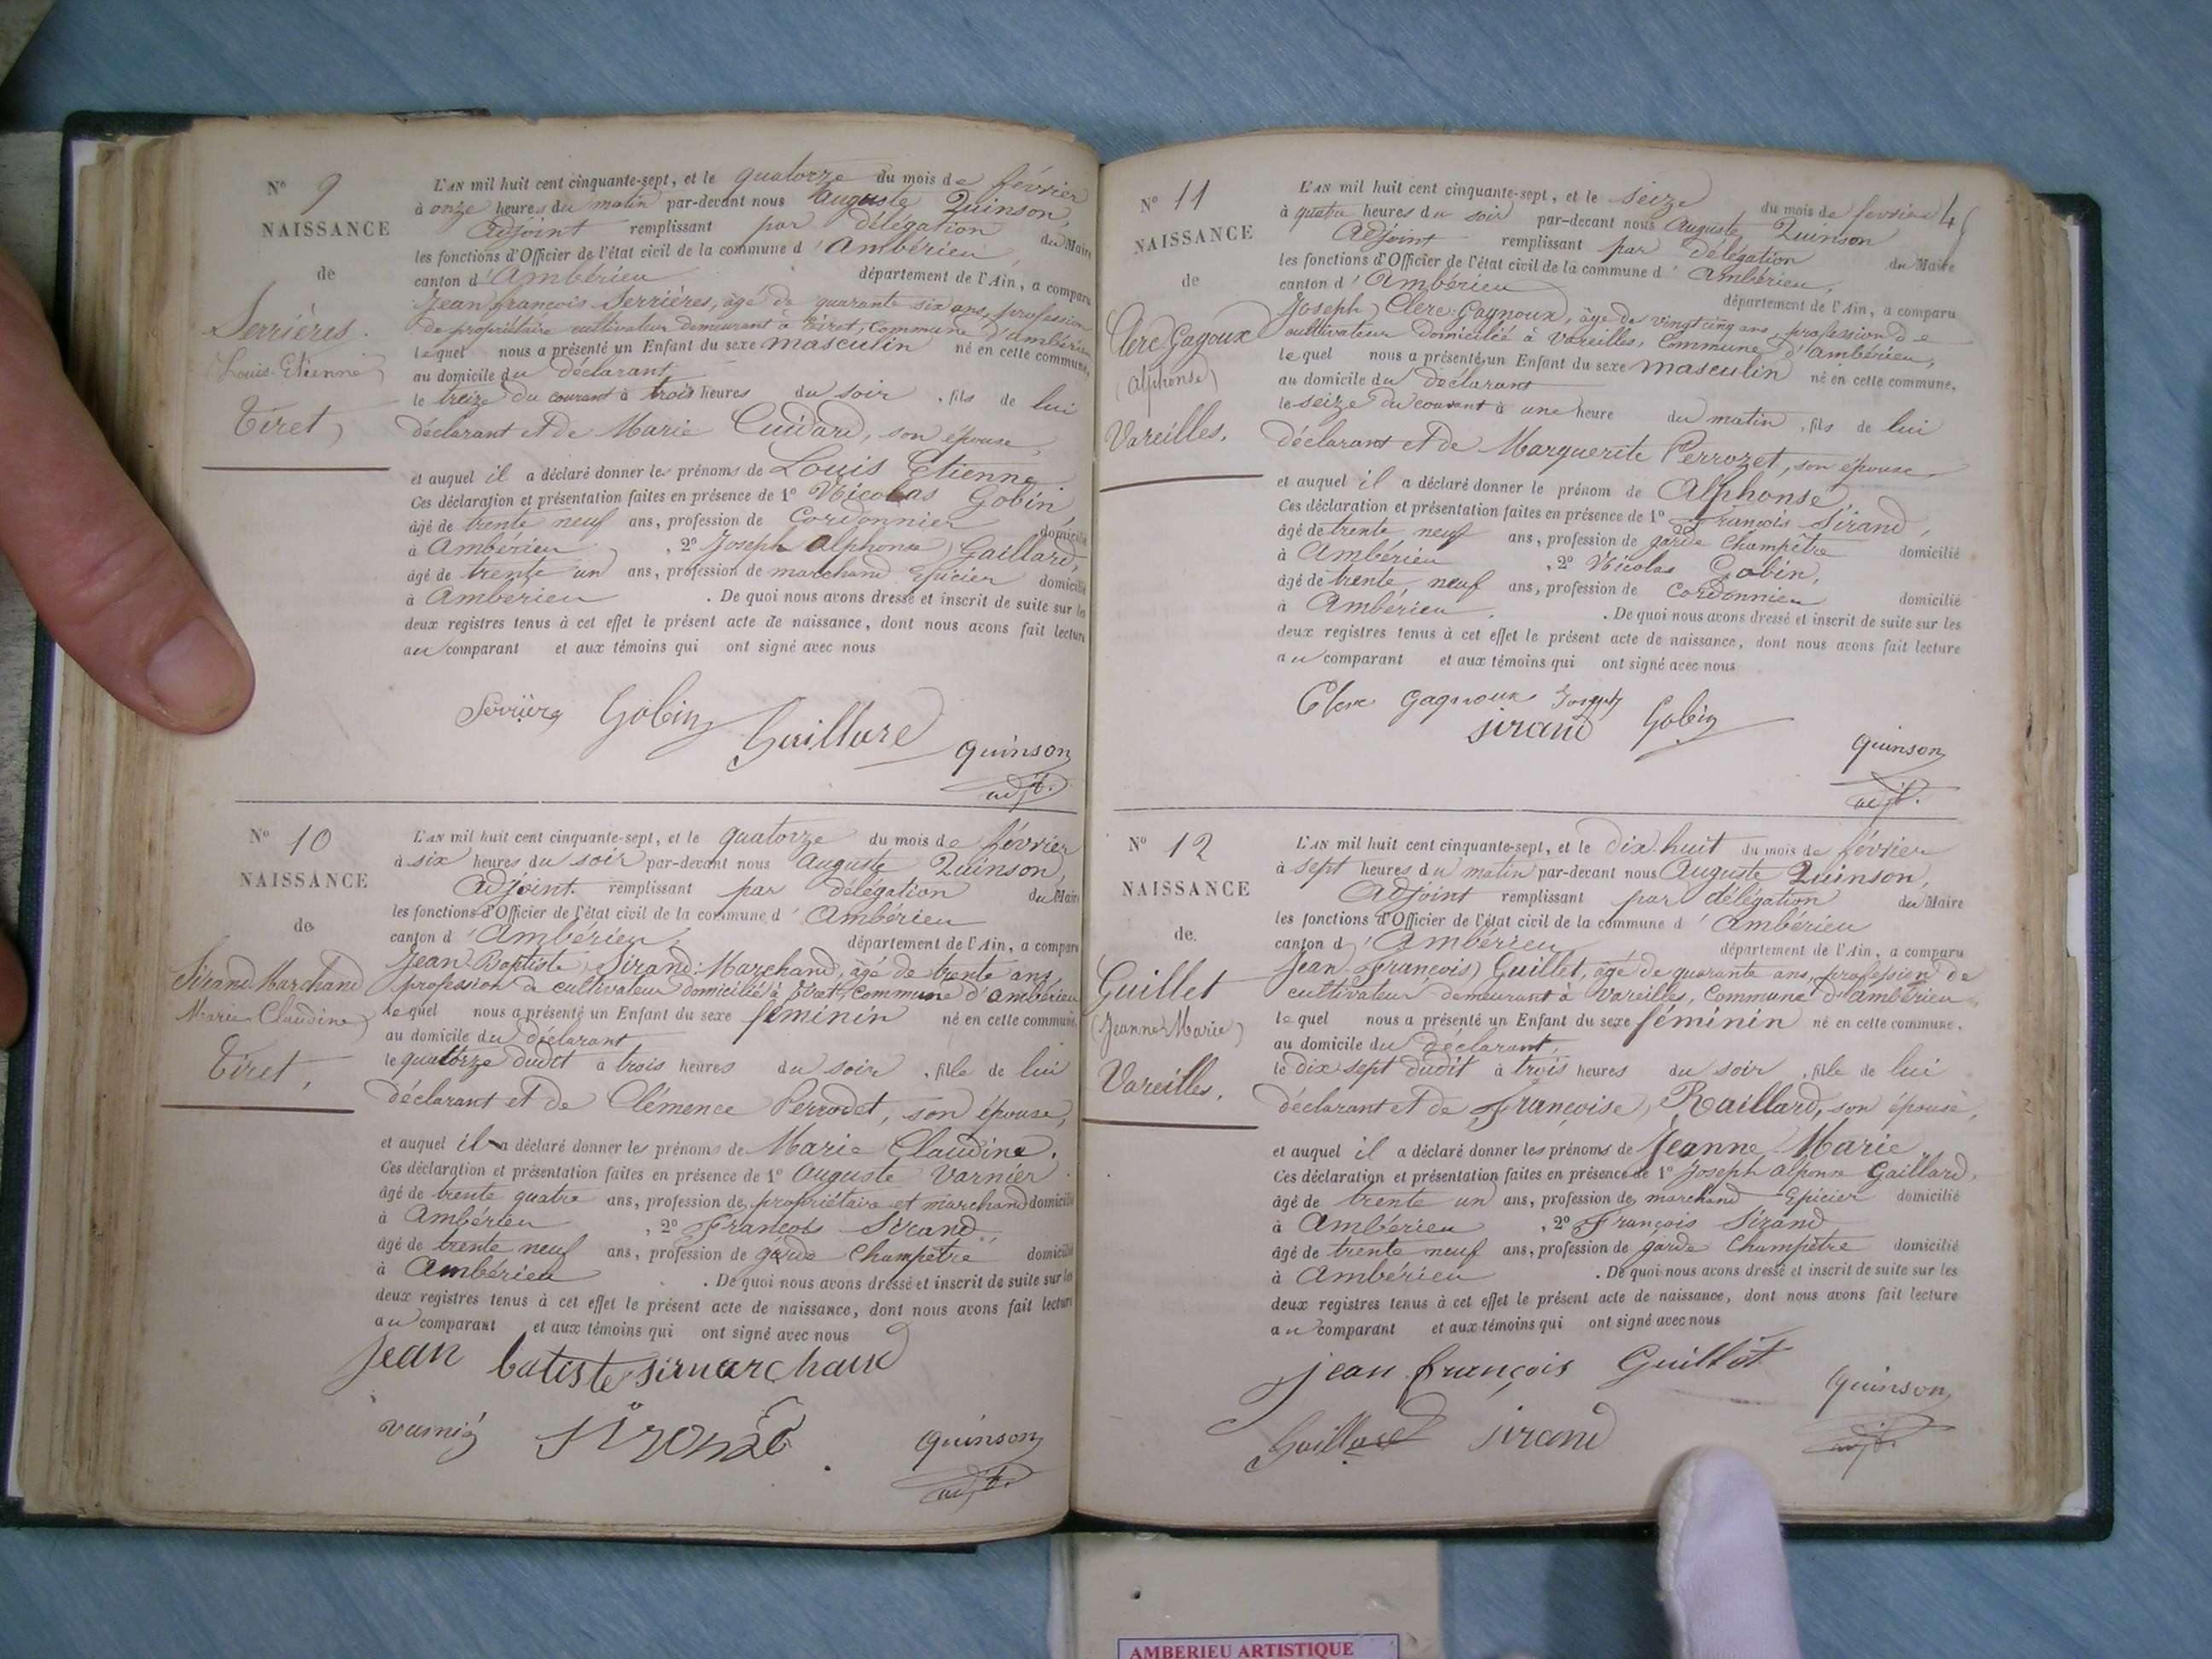 N° 9
NAISSANCE
de
Serrières
(Louis Etienne)
Tiret
L'AN mil huit cent cinquante-sept, et le quatorze du mois de février
à onze heures du matin par-devant nous Auguste Quinson,
Adjoint remplissant par délégation du Maire
les fonctions d'Officier de l'état civil de la commune d'Ambérieu,
canton d'Ambérieu département de l'Ain, a comparu
Jean françois Serrières, âgé de quarante six ans, profession
de propriétaire cultivateur demeurant à Tiret, Commune d'ambérieu
lequel nous a présenté un Enfant du sexe masculin né en cette commune,
au domicile du déclarant
le treize du courant à trois heures du soir, fils de lui
déclarant et de Marie Cuidard, son épouse,
et auquel il a déclaré donner les prénoms de Louis Etienne
Ces déclaration et présentation faites en présence de 1° Nicolas Gobin,
âgé de trente neuf ans, profession de Cordonnier domicilié
à Ambérieu, 2° Joseph Alphonse Gaillard,
âgé de trente un ans, profession de marchand Epicier domicilié
à Amberieu. De quoi nous avons dressé et inscrit de suite sur les
deux registres tenus à cet effet le présent acte de naissance, dont nous avons fait lecture
au comparant et aux témoins qui ont signé avec nous
Gobin Gaillard quinson
adjt.
N° 10
NAISSANCE
de
Sirand Marchand
Marie Claudine)
Tiret,
L'AN mil huit cent cinquante-sept, et le quatorze du mois de février
à six heures du soir par-devant nous Auguste Quinson,
Adjoint remplissant par délégation du Maire
les fonctions d'Officier de l'état civil de la commune d'Ambérieu
canton d'Ambérieu, département de l'Ain, a comparu
Jean Baptiste Sirand-Marchand, âgé de trente ans,
profession de cultivateur domicilié à Tiret, Commune d'ambérieu
lequel nous a présenté un Enfant du sexe féminin né en cette commune,
au domicile du déclarant
le quatorze dudit à trois heures du soir, fille de lui
déclarant et de Clémence Perrodet, son épouse,
et auquel il a déclaré donner les prénoms de Marie Claudine.
Ces déclaration et présentation faites en présence de 1° Auguste Varnier
âgé de trente quatre ans, profession de propriétaire et marchand domicilié
à Ambérieu, 2° François Sirand,
âgé de trente neuf ans, profession de garde Champêtre domicilié
à Ambérieu. De quoi nous avons dressé et inscrit de suite sur les
deux registres tenus à cet effet le présent acte de naissance, dont nous avons fait lecture
au comparant et aux témoins qui ont signé avec nous
Jean batiste
quinson
adjt.
N° 11
NAISSANCE
de
Clerc Gagoux
(Alphonse)
Vareilles.
L'AN mil huit cent cinquante-sept, et le seize du mois de fevrier
à quatre heures du soir par-devant nous Auguste Quinson
Adjoint remplissant par délégation du Maire
les fonctions d'Officier de l'état civil de la commune d'Ambérieu,
canton d'Ambérieu département de l'Ain, a comparu
Joseph Clerc-Gagnoux, âgé de vingt cinq ans, profession de
cultivateur domicilié à Vareilles, Commune d'ambérieu,
lequel nous a présenté un Enfant du sexe masculin né en cette commune,
au domicile du déclarant
le seize du courant à une heure du matin, fils de lui
déclarant et de Marguerite Perrozet, son épouse
et auquel il a déclaré donner le prénom de Alphonse,
Ces déclaration et présentation faites en présence de 1° François Sirand,
âgé de trente neuf ans, profession de garde Champêtre domicilié
à Ambérieu, 2° Nicolas Gobin,
âgé de trente neuf ans, profession de Cordonnier domicilié
à Ambérieu. De quoi nous avons dressé et inscrit de suite sur les
deux registres tenus à cet effet le présent acte de naissance, dont nous avons fait lecture
au comparant et aux témoins qui ont signé avec nous
Clerc Gagnoux Joseph
sirand Gobin
quinson
adjt.
N° 12
NAISSANCE
de
Guillet
(Jeanne Marie)
Vareilles.
L'AN mil huit cent cinquante-sept, et le dix huit du mois de février
à sept heures du matin par-devant nous Auguste Quinson,
Adjoint remplissant par délégation du Maire
les fonctions d'Officier de l'état civil de la commune d'Ambérieu
canton d'Ambérieu, département de l'Ain, a comparu
Jean-François Guillet, âgé de quarante ans, profession de
cultivateur demeurant à Vareilles, Commune d'ambérieu
lequel nous a présenté un Enfant du sexe féminin né en cette commune.
au domicile du déclarant,
le dix sept dudit à trois heures du soir, fille de lui
déclarant et de Françoise Raillard, son épouse,
et auquel il a déclaré donner les prénoms de Jeanne Marie
Ces déclaration et présentation faites en présence de 1° Joseph Alfonse Gaillard,
âgé de trente un ans, profession de marchand Epicier domicilié
à Ambérieu, 2° François Sirand
âgé de trente neuf ans, profession de garde Champêtre domicilié
à Ambérieu. De quoi nous avons dressé et inscrit de suite sur les
deux registres tenus à cet effet le présent acte de naissance, dont nous avons fait lecture
au comparant et aux témoins qui ont signé avec nous
jean françois Guillet quinson
Gaillard sirand adjt.
AMBERIEU ARTISTIQUE